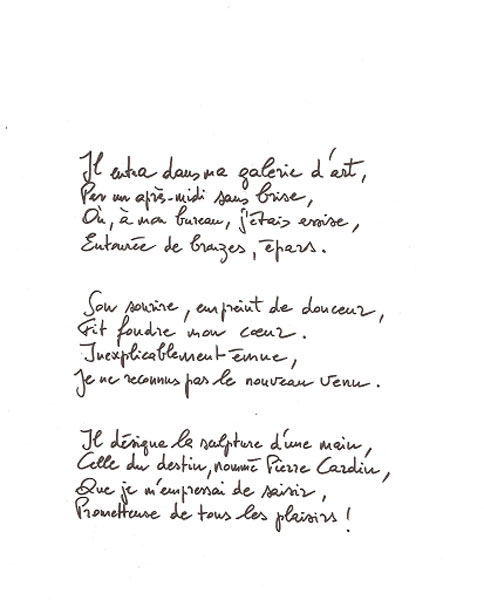 Il entra dans ma galerie d'art,
Par un après-midi sans brise,
Où, à mon bureau, j'étais assise,
Entourée de bronzes, épars.
Son sourire, empreint de douceur,
Fit fondre mon cœur.
Inexplicablement émue,
Je ne reconnus pas le nouveau venu.
Il désigna la sculpture d'une main,
Celle du destin, nommé Pierre Cardin,
Que je m'empressai de saisir,
Prometteuse de tous les plaisirs !